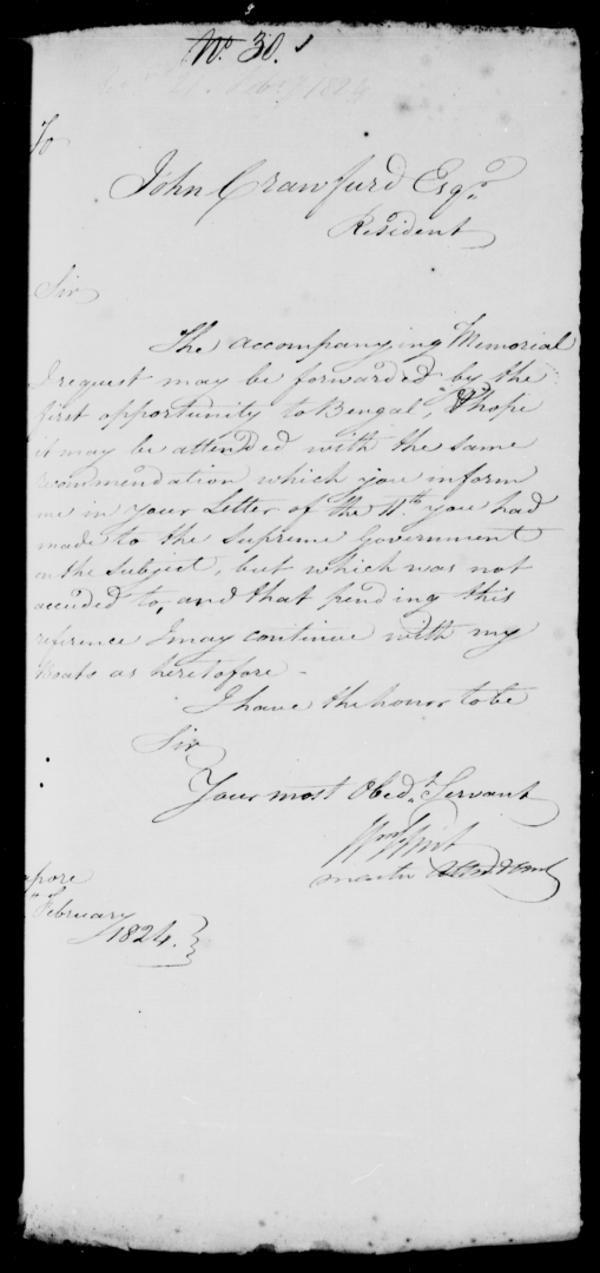 No. 30.
To
John Crawfurd Esqr.
Resident
Sir
The accompanying Memorial
I request may be forwarded by the
first opportunity to Bengal, & hope
it may be attended with the same
recommendation which you inform
me in your Letter of the 11th. you had
made to the Supreme Government
on the subject, but which was not
acceded to, and that pending this
reference I may continue with my
Boats as heretofore -
I have the honor to be
Sir
Your most Obedt. Servant
Wm Flint
Master Attendant
apore
February
1824.